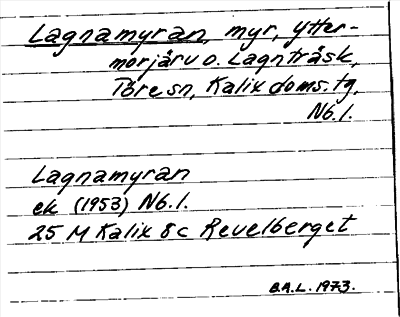 Lagnamyran, myr, Ytter-
morjärv o. Lagnträsk,
Töre sn, Kalix doms.tg,
Nb.l.
Lagnamyran
ek (1953) Nb.l.
25 M Kalix 8c Revelberget
B.A.L. 1973.